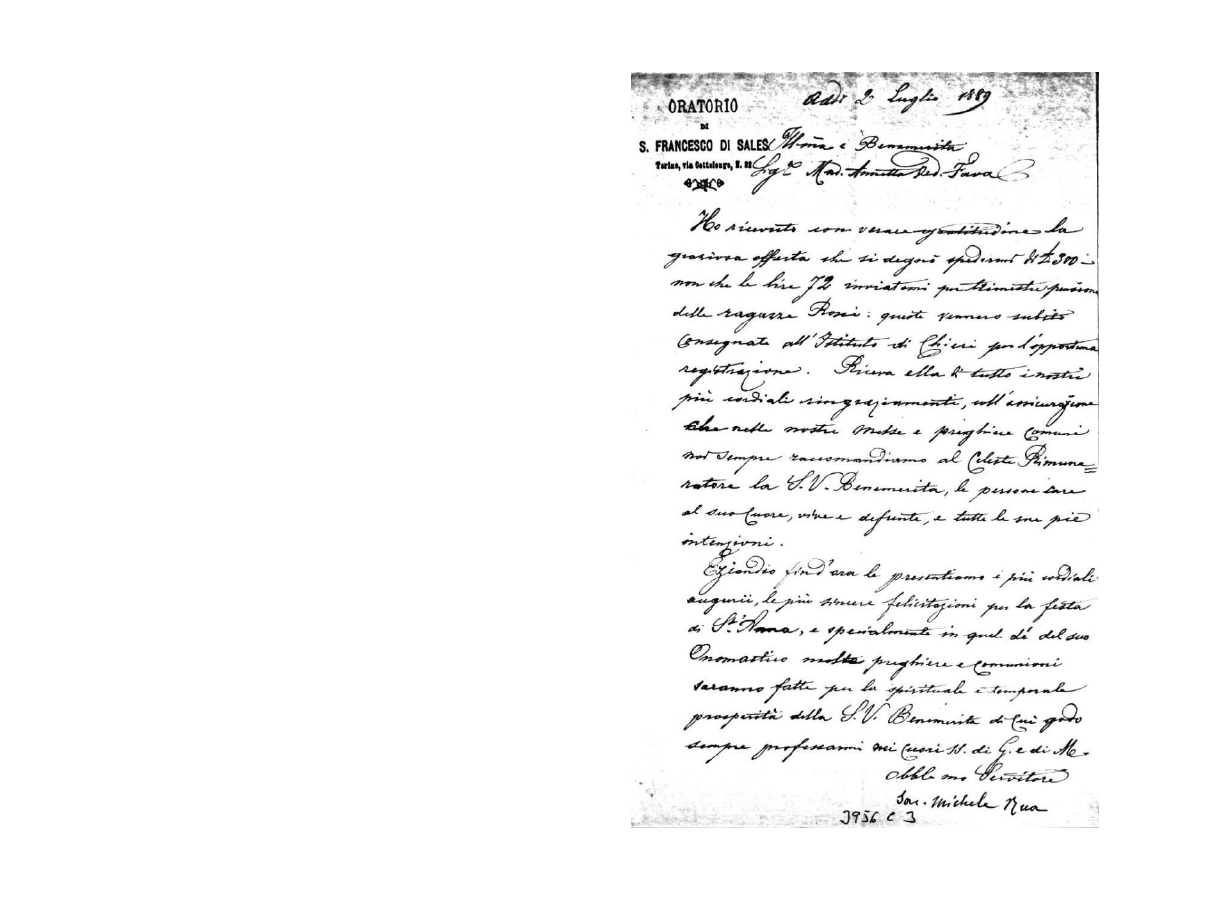 ORATORIO
DI
S. FRANCESCO DI SALES
Torino, via Cottolengo, N. 32
Addì 2 Luglio 1889
Ill.ma e Benemerita
Sig.ra Mad. Annetta Ved. Fava
Ho ricevuto con verace gratitudine la
graziosa offerta che si degnò spedirmi di £ 300 -
non che le lire 72 inviatemi per trimestre pensione
delle ragazze Rossi: queste vennero subito
consegnate all'Istituto di Chieri per l'opportuna
registrazione. Riceva ella di tutto i nostri
più cordiali ringraziamenti, coll'assicurazione
che nelle nostre Messe e preghiere comuni
noi sempre raccomandiamo al Celeste Rimune=
ratore la S. V. Benemerita, le persone care
al suo Cuore, vive e defunte, e tutte le sue pie
intenzioni.
Eziandio fin d'ora le presentiamo i più cordiali
augurii, le più sincere felicitazioni per la festa
di St'Anna, e specialmente in quel dì del suo
Onomastico molte preghiere e comunioni
saranno fatte per la spirituale e temporale
prosperità della S. V. Benemerita di cui godo
sempre professarmi nei Cuori SS. di G. e di M.
Obbl.mo Servitore
Sac. Michele Rua
3956 C 3